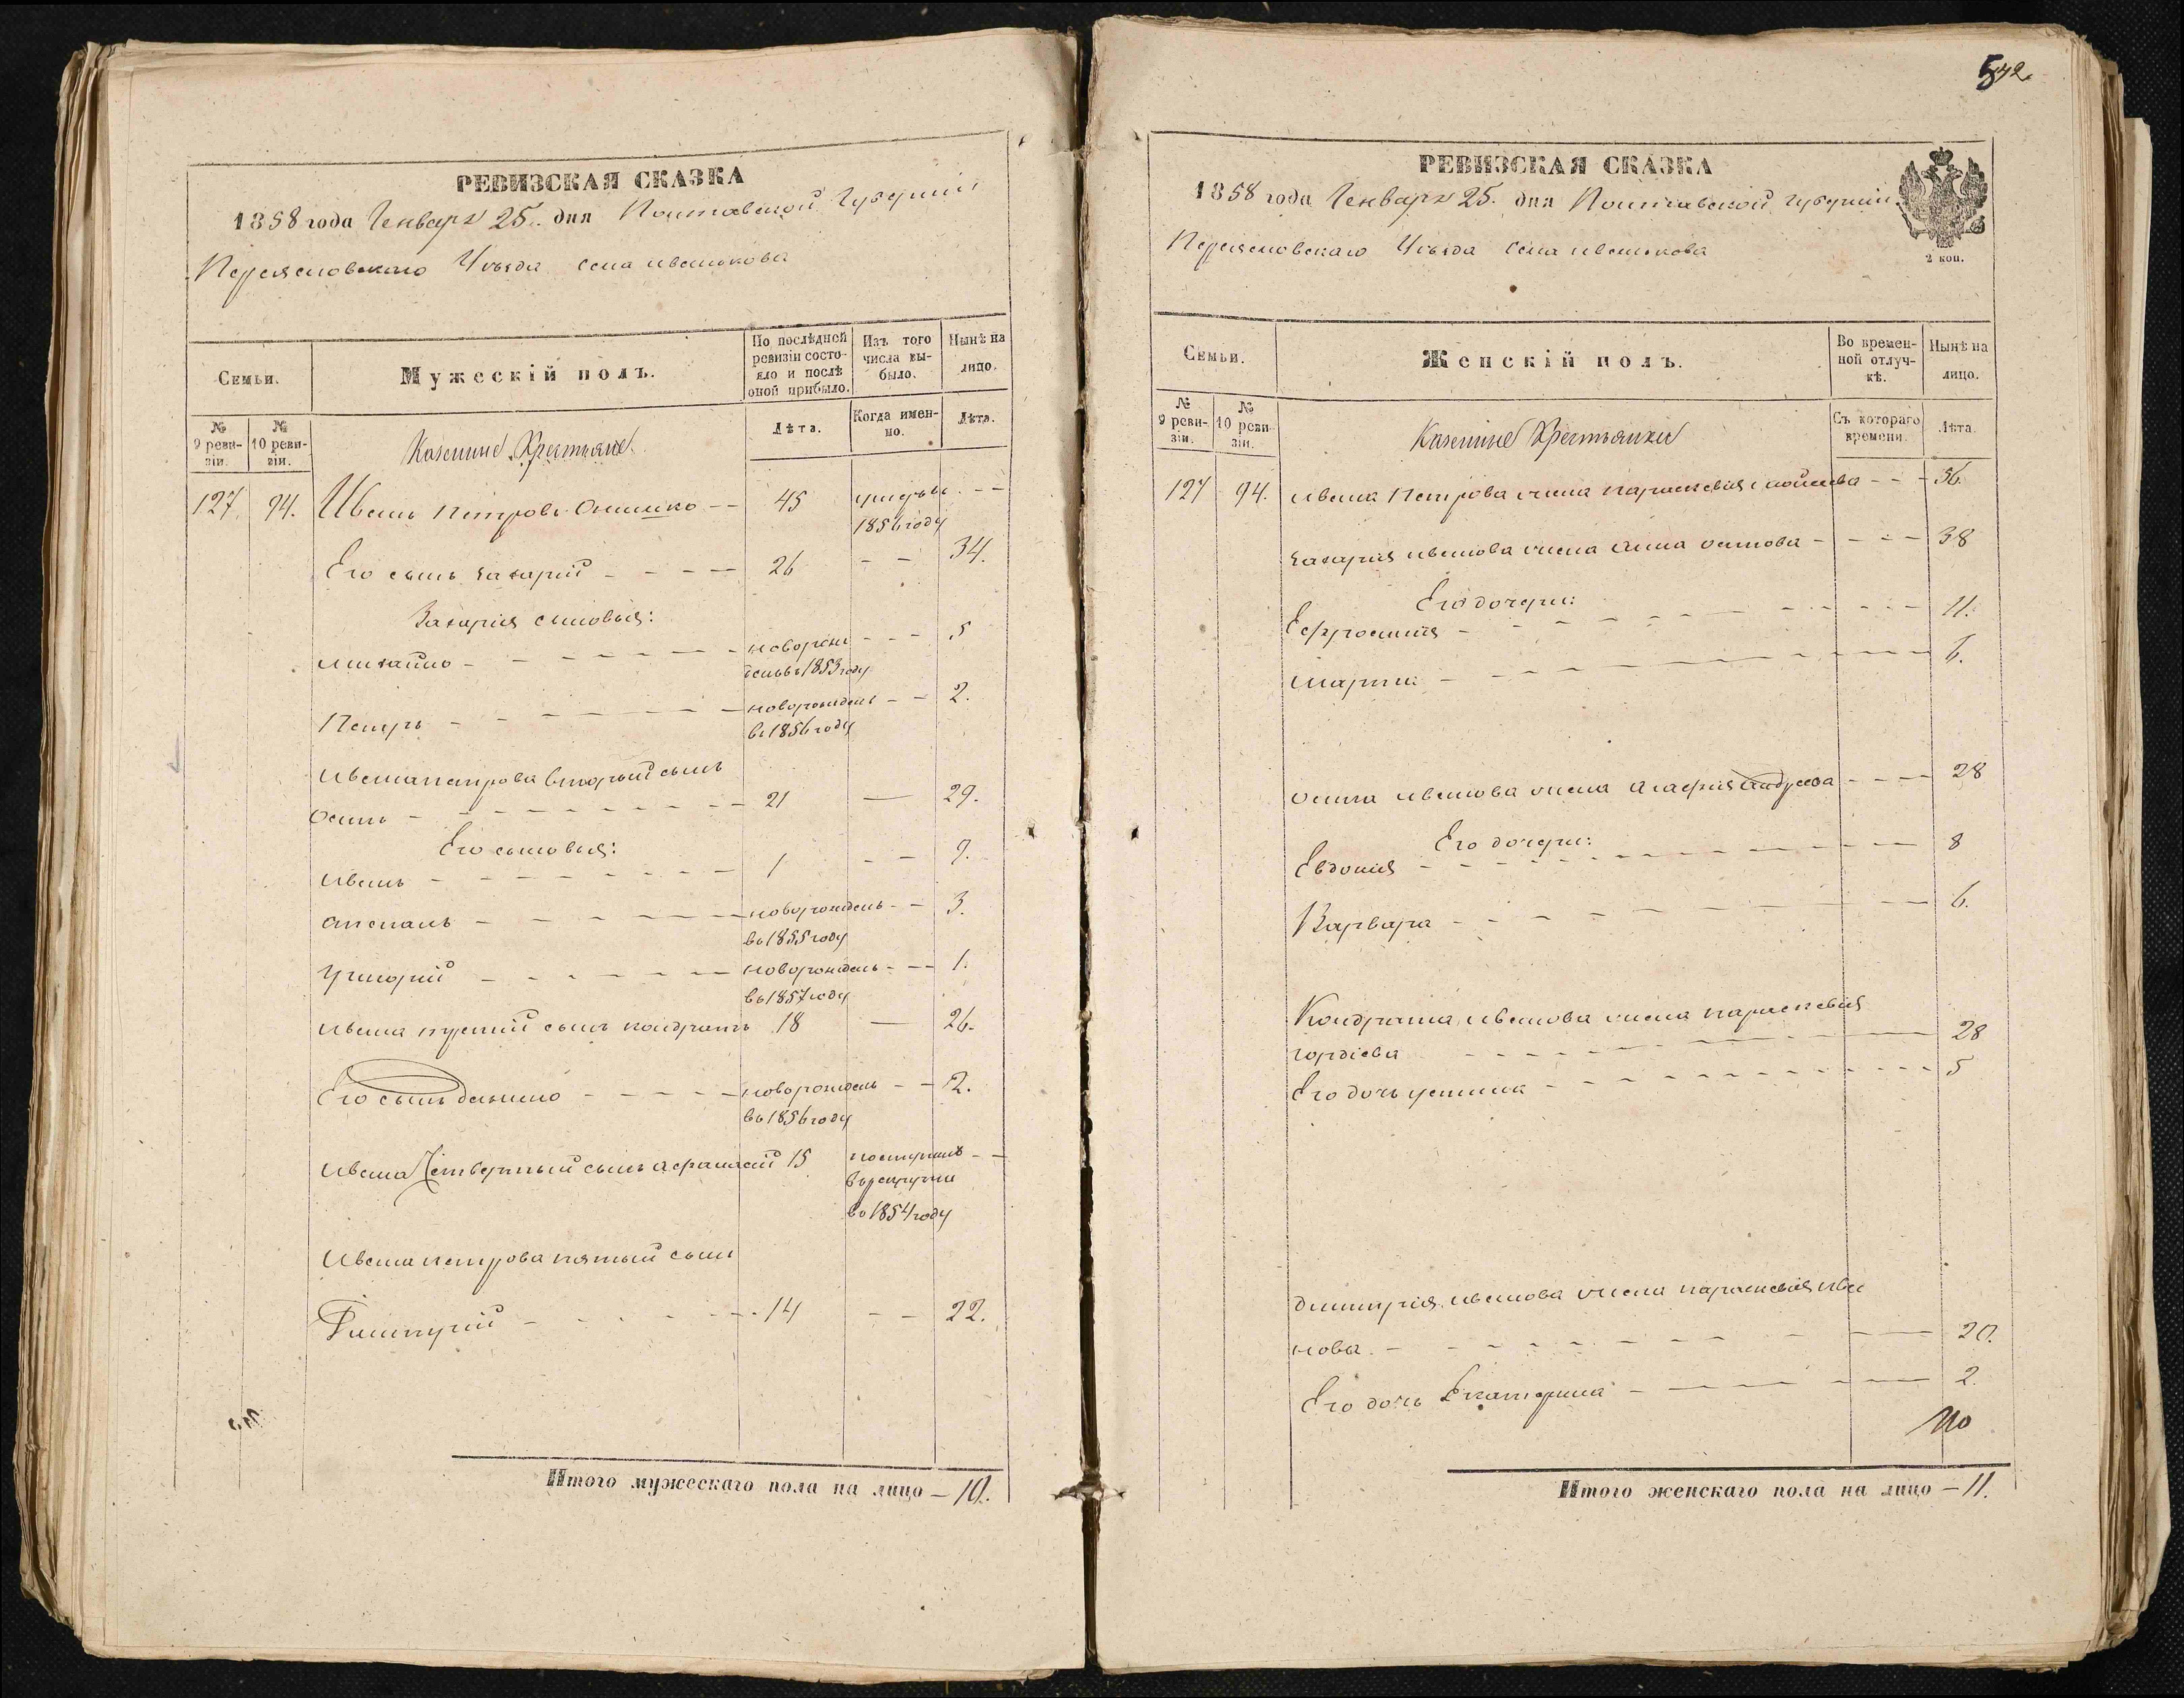 РЕВИЗСКАЯ СКАЗКА
1858 года Генваря 25. дня Полтавской Губерніи
Переясловскаго Уѣзда села Иванькова
Семьи.
Мужескій полъ.
По послѣдней ревизіи состояло и послѣ оной прибыло.
Изъ того числа выбыло.
Нынѣ на лицо.
№ 9 ревизіи.
№ 10 ревизіи.
Казенные Крестьяне
Лѣта.
Когда именно.
Лѣта.
127. 94. Иванъ Петровъ Онишко 45 умеръ
1856 году
Его сынъ Захарій 26 34.
Захарія сыновья:
Михайло новорож 5
денъ въ 1853 году
Петръ новорожденъ 2.
въ 1856 году
Ивана Петрова вторый сынъ
Осипъ 21 29.
Его сыновья:
Иванъ 1 9.
новорожденъ 3.
въ 1855 году
Григорій новорожденъ 1.
въ 1857 году
Ивана третій сынъ Кондратъ 18 26.
Его сынъ Данило новорожденъ 2.
въ 1856 году
Ивана Четвертый сынъ Афанасій 15 поступилъ
въ рекруты
въ 1854 году
Ивана Петрова пятый сынъ
Димитрій 14 22.
Итого мужескаго пола на лицо — 10.
542
РЕВИЗСКАЯ СКАЗКА
1858 года Генваря 25. дня Полтавской Губерніи
Переясловскаго Уѣзда села Иванькова
2 коп.
Семьи.
Женскій полъ.
Во временной отлучкѣ.
Нынѣ на лицо.
№ 9 ревизіи.
№ 10 ревизіи.
Казенные Крестьянки
Съ котораго времени.
Лѣта.
127 94. Ивана Петрова жена Параскевія 56.
Захарія Иванова жена Анна Осипова 38
Его дочери:
Ефросинія 11.
Марина 6.
Осипа Иванова жена Агафія Андреева 28
Его дочери:
Евдокія 8
Варвара 6.
Кондрата Иванова жена Параскевія
Гордіева 28
Его дочь Устина 5
Димитрія Иванова жена Параскевія Ива
нова 20.
Его дочь Екатерина 2.
Итого женскаго пола на лицо — 11.